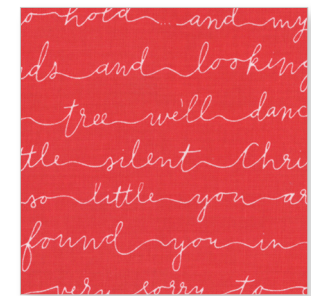 to hold ... and my
ds and looking
tree we'll danc
ttle silent Chri
so little you ar
found you in
very sorry to